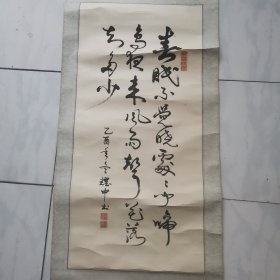 春眠不觉晓处处闻啼
鸟夜来风雨声花落
知多少
乙酉年
书